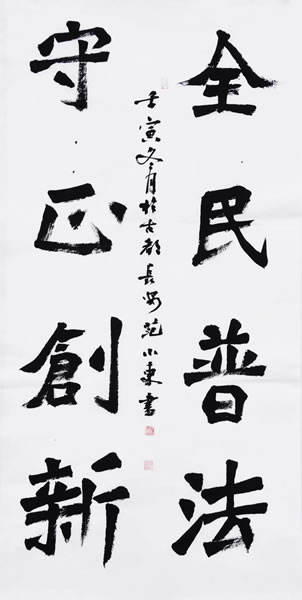 全民普法
守正創新
壬寅冬月於古都長安范小東書